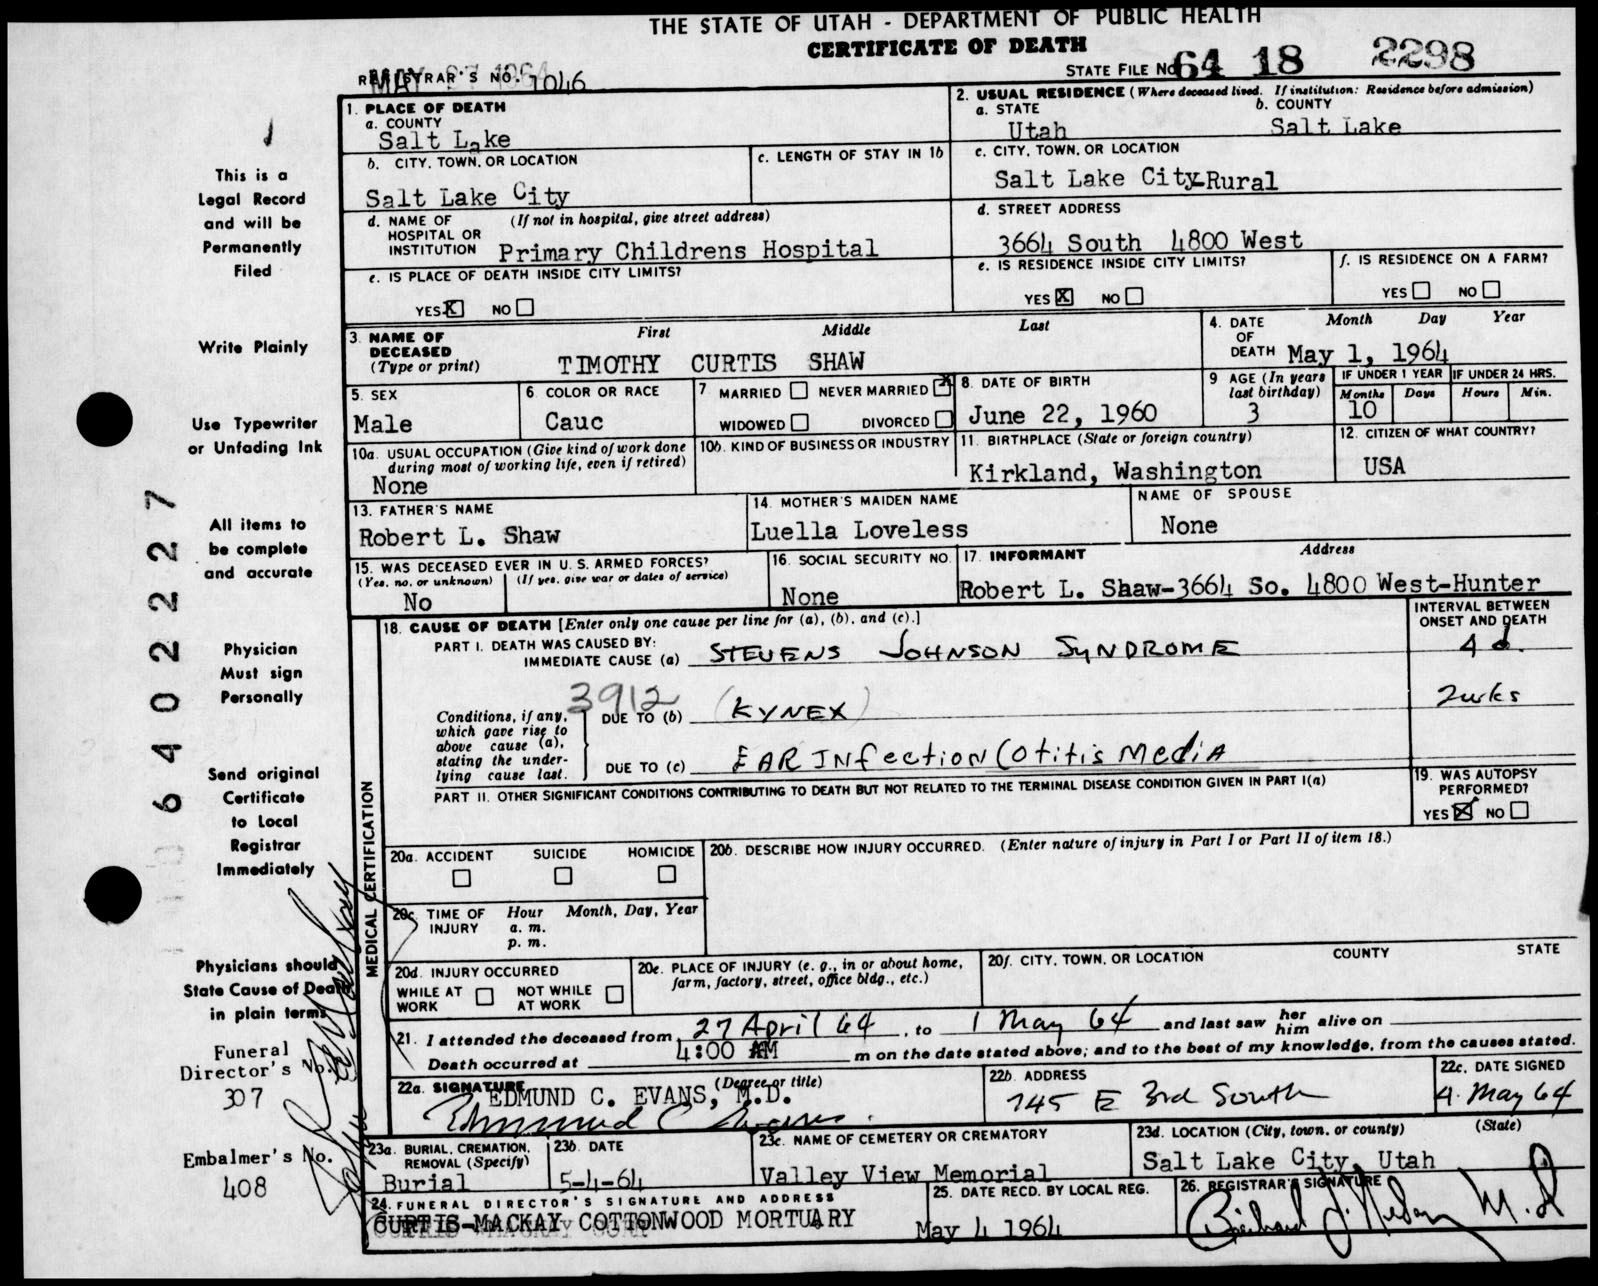 THE STATE OF UTAH - DEPARTMENT OF PUBLIC HEALTH
CERTIFICATE OF DEATH
REGISTRAR'S NO. 1046
STATE FILE NO 64 18 2298
This is a
Legal Record
and will be
Permanently
Filed
Write Plainly
Use Typewriter
or Unfading Ink
All items to
be complete
and accurate
Physician
Must sign
Personally
Send original
Certificate
to Local
Registrar
Immediately
Physicians should
State Cause of Death
in plain terms
Funeral
Director's No.
307
Embalmer's No.
408
6402227
1. PLACE OF DEATH
a. COUNTY
Salt Lake
b. CITY, TOWN, OR LOCATION
Salt Lake City
c. LENGTH OF STAY IN 1b
d. NAME OF HOSPITAL OR INSTITUTION (If not in hospital, give street address)
Primary Childrens Hospital
e. IS PLACE OF DEATH INSIDE CITY LIMITS?
YES X NO
2. USUAL RESIDENCE (Where deceased lived. If institution: Residence before admission)
a. STATE
Utah
b. COUNTY
Salt Lake
c. CITY, TOWN, OR LOCATION
Salt Lake City-Rural
d. STREET ADDRESS
3664 South 4800 West
e. IS RESIDENCE INSIDE CITY LIMITS?
YES X NO
f. IS RESIDENCE ON A FARM?
YES NO
3. NAME OF DECEASED (Type or print)
First Middle Last
TIMOTHY CURTIS SHAW
4. DATE OF DEATH
Month Day Year
May 1, 1964
5. SEX
Male
6 COLOR OR RACE
Cauc
7 MARRIED NEVER MARRIED X
WIDOWED DIVORCED
8. DATE OF BIRTH
June 22, 1960
9 AGE (In years last birthday)
3
IF UNDER 1 YEAR
Months Days
10
IF UNDER 24 HRS.
Hours Min.
10a. USUAL OCCUPATION (Give kind of work done during most of working life, even if retired)
None
10b. KIND OF BUSINESS OR INDUSTRY
11. BIRTHPLACE (State or foreign country)
Kirkland, Washington
12. CITIZEN OF WHAT COUNTRY?
USA
13. FATHER'S NAME
Robert L. Shaw
14. MOTHER'S MAIDEN NAME
Luella Loveless
NAME OF SPOUSE
None
15. WAS DECEASED EVER IN U. S. ARMED FORCES?
(Yes, no, or unknown) (If yes, give war or dates of service)
No
16. SOCIAL SECURITY NO.
None
17. INFORMANT Address
Robert L. Shaw-3664 So. 4800 West-Hunter
MEDICAL CERTIFICATION
18. CAUSE OF DEATH [Enter only one cause per line for (a), (b), and (c).]
INTERVAL BETWEEN ONSET AND DEATH
PART I. DEATH WAS CAUSED BY:
IMMEDIATE CAUSE (a) STEVENS JOHNSON SYNDROME
4 d.
3912
Conditions, if any, which gave rise to above cause (a), stating the underlying cause last.
DUE TO (b) (KYNEX)
2wks
DUE TO (c) EAR INfection (Otitis Media
PART II. OTHER SIGNIFICANT CONDITIONS CONTRIBUTING TO DEATH BUT NOT RELATED TO THE TERMINAL DISEASE CONDITION GIVEN IN PART I(a)
19. WAS AUTOPSY PERFORMED?
YES X NO
20a. ACCIDENT SUICIDE HOMICIDE
20b. DESCRIBE HOW INJURY OCCURRED. (Enter nature of injury in Part I or Part II of item 18.)
20c. TIME OF INJURY Hour Month, Day, Year
a. m.
p. m.
20d. INJURY OCCURRED
WHILE AT WORK NOT WHILE AT WORK
20e. PLACE OF INJURY (e. g., in or about home, farm, factory, street, office bldg., etc.)
20f. CITY, TOWN, OR LOCATION COUNTY STATE
21. I attended the deceased from 27 April 64, to 1 May 64 and last saw her him alive on
Death occurred at 4:00 AM m on the date stated above; and to the best of my knowledge, from the causes stated.
22a. SIGNATURE (Degree or title)
EDMUND C. EVANS, M.D.
Edmund C Evans
22b. ADDRESS
745 E 3rd South
22c. DATE SIGNED
4 May 64
23a. BURIAL, CREMATION, REMOVAL (Specify)
Burial
23b. DATE
5-4-64
23c. NAME OF CEMETERY OR CREMATORY
Valley View Memorial
23d. LOCATION (City, town, or county) (State)
Salt Lake City, Utah
24. FUNERAL DIRECTOR'S SIGNATURE AND ADDRESS
CURTIS-MACKAY COTTONWOOD MORTUARY
25. DATE RECD. BY LOCAL REG.
May 4 1964
26. REGISTRAR'S SIGNATURE